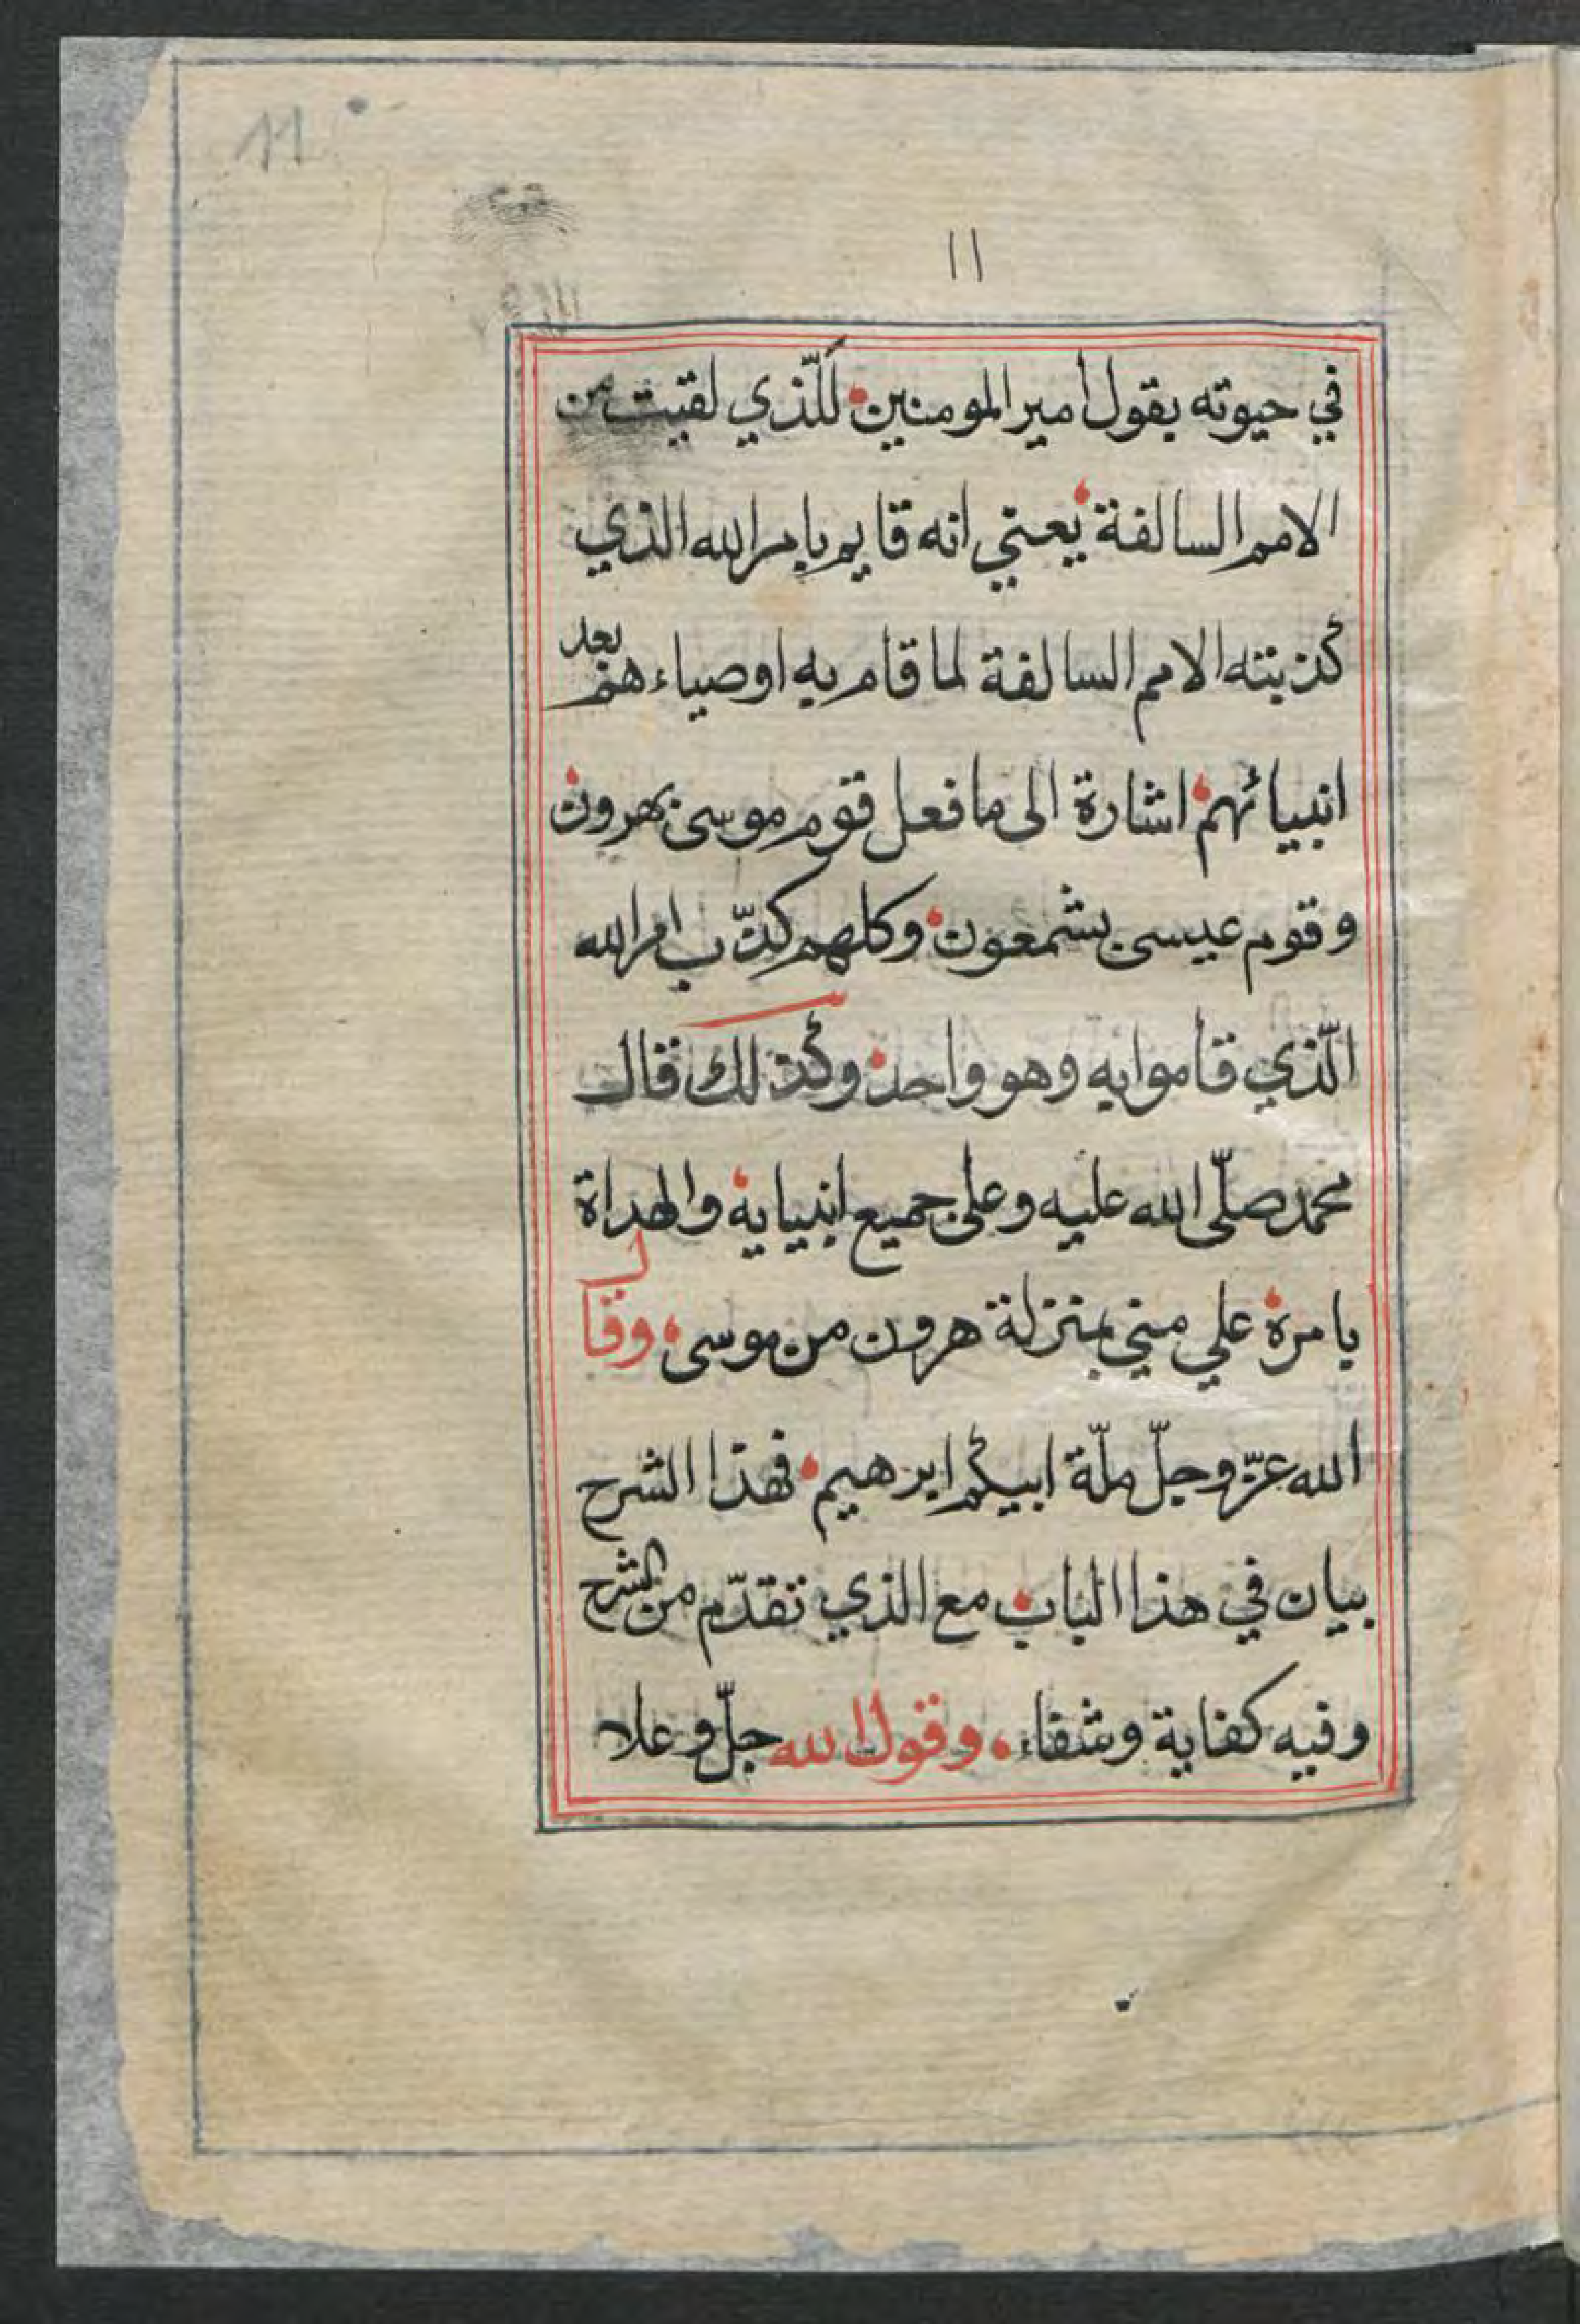 11
١١
في حيوته يقول امير المومنين للّذي لقيت من
الامم السالفة يعني انه قايم بامر الله الذي
كذبته الامم السالفة لما قام به اوصياءهم بعد
انبيائهم اشارة الى ما فعل قوم موسى بهرون
وقوم عيسى بشمعون وكلهم كذّب امر الله
الّذي قاموا به وهو واحد وكذلك قال
محمد صلّى الله عليه وعلى جميع انبيايه والهداة
بامره علي مني بمنزلة هرون من موسى وقال
الله عزّ وجلّ ملّة ابيكم ابرهيم فهذا الشرح
بيان في هذا الباب مع الذي تقدّم من الشرح
وفيه كفاية وشفاء وقول الله جلّ وعلا